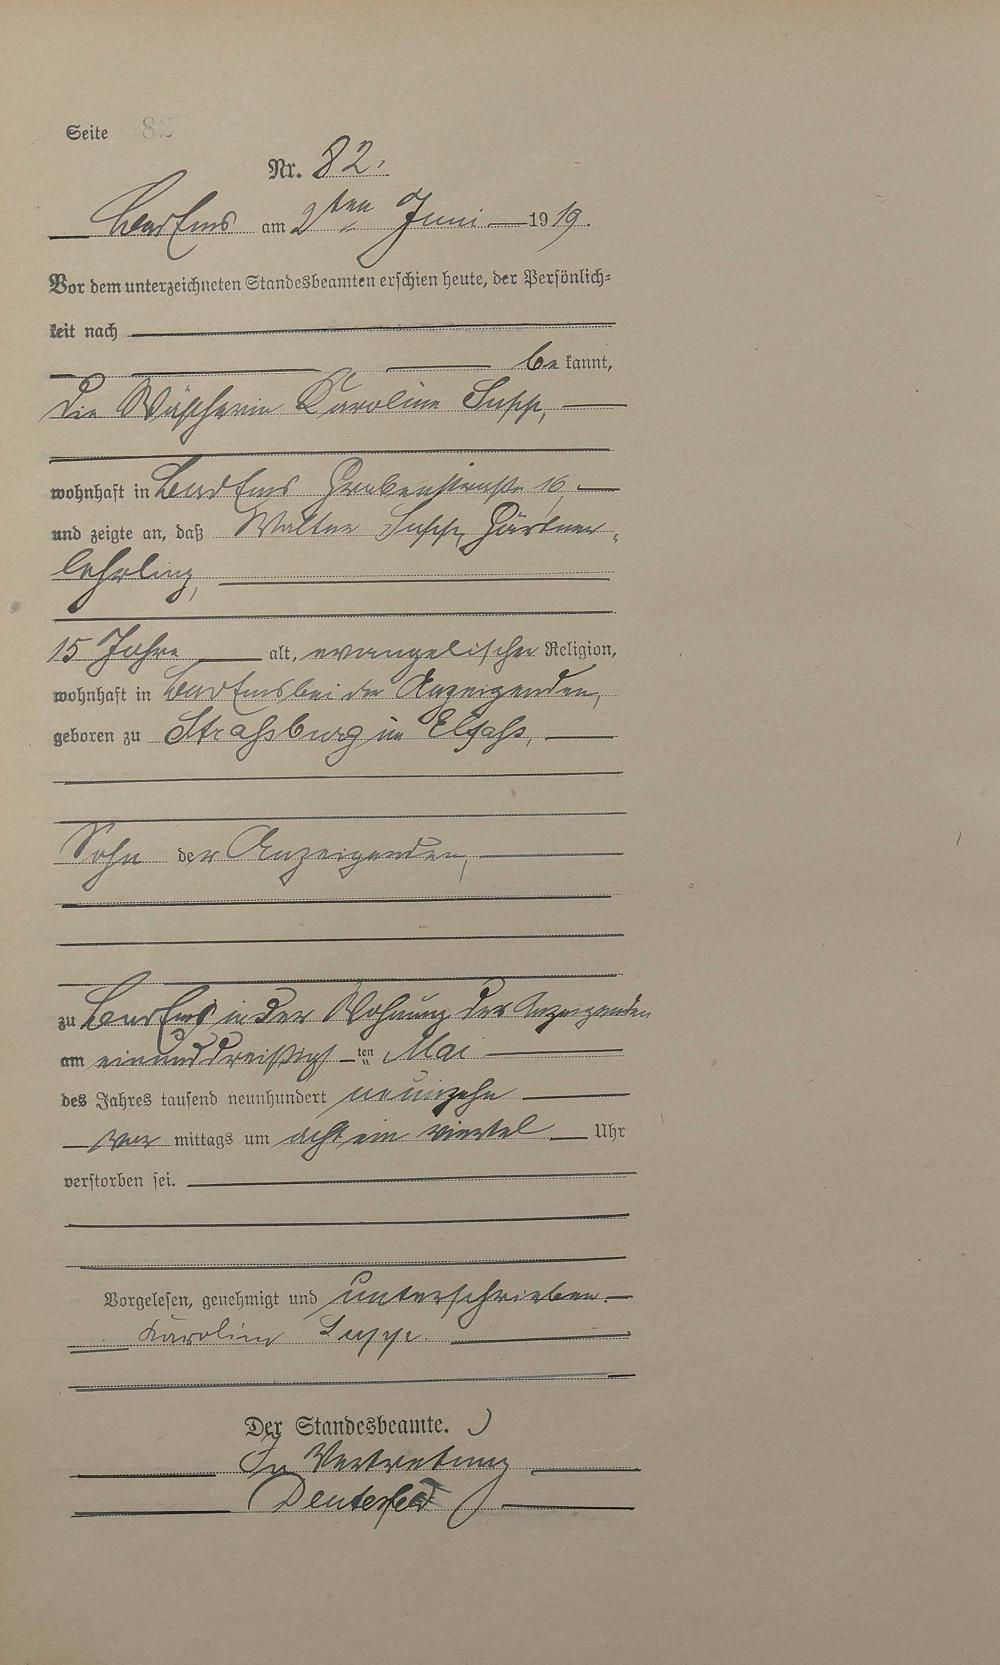 Seite 82
Nr. 82.
Bad Ems am 2ten Juni 1919.
Vor dem unterzeichneten Standesbeamten erschien heute, der Persönlich-
keit nach
be kannt,
die Wäscherin Karoline Supp,
wohnhaft in Bad Ems Grabenstraße 16,
und zeigte an, daß Walter Supp, Gärtner-
lehrling,
15 Jahre alt, evangelischer Religion,
wohnhaft in Bad Ems bei der Anzeigenden,
geboren zu Strahsburg im Elsahs,
Sohn der Anzeigenden,
zu Bad Ems in der Wohnung der Anzeigenden
am einunddreißigsten Mai
des Jahres tausend neunhundert neunzehn
vor mittags um acht ein viertel Uhr
verstorben sei.
Vorgelesen, genehmigt und unterschrieben.
Karoline Supp.
Der Standesbeamte.
In Vertretung